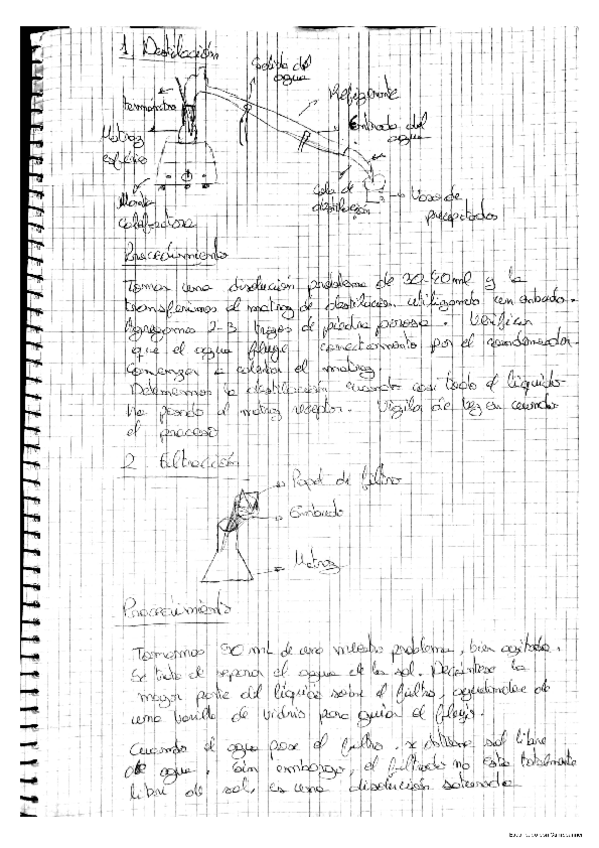 1. Destilación
Salida del
agua
Refrigerante
termómetro
Entrada del
agua
Matraz
esférico
Cola de
destilación
Vaso de
precipitados
Manta
calefactora
Procedimiento
Tomar una disolución problema de 30-40 ml y la
transferimos al matraz de destilación utilizando un embudo.
Agregamos 2-3 trozos de piedra porosa. Verificar
que el agua fluye correctamente por el condensador.
Comenzar a calentar el matraz
Detenemos la destilación cuando casi todo el líquido
ha pasado al matraz receptor. Vigila de vez en cuando
el proceso
2 Filtración
Papel de filtro
Embudo
Matraz
Procedimiento
Tomamos 50 mL de una muestra problema, bien agitada.
Se trata de separar el agua de la sal. Decántese la
mayor parte del líquido sobre el filtro, ayudándose de
una varilla de vidrio para guiar el flujo.
Cuando el agua pase el filtro, se obtiene sal libre
de agua, sin embargo, el filtrado no está totalmente
libre de sal, es una disolución saturada